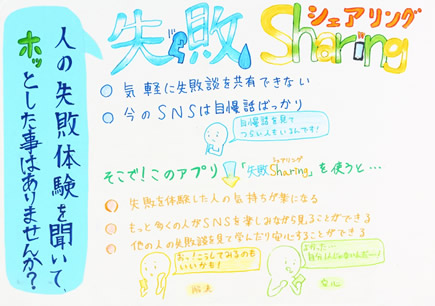 人の失敗体験を聞いて、
ホッとした事はありませんか？
失敗 シェアリング
Sharing
気軽に失敗談を共有できない
今のSNSは自慢話ばっかり
自慢話を見て
つらい人もいるんです！
そこで！このアプリ「失敗Sharing」を使うと…
シェアリング
失敗を体験した人の気持ちが楽になる
もっと多くの人がSNSを楽しみながら見ることができる
他の人の失敗談を見て学んだり安心することができる
おっ！こうしてみるのも
いいかも！
よかった…
自分1人じゃないんだ…！
解決
安心